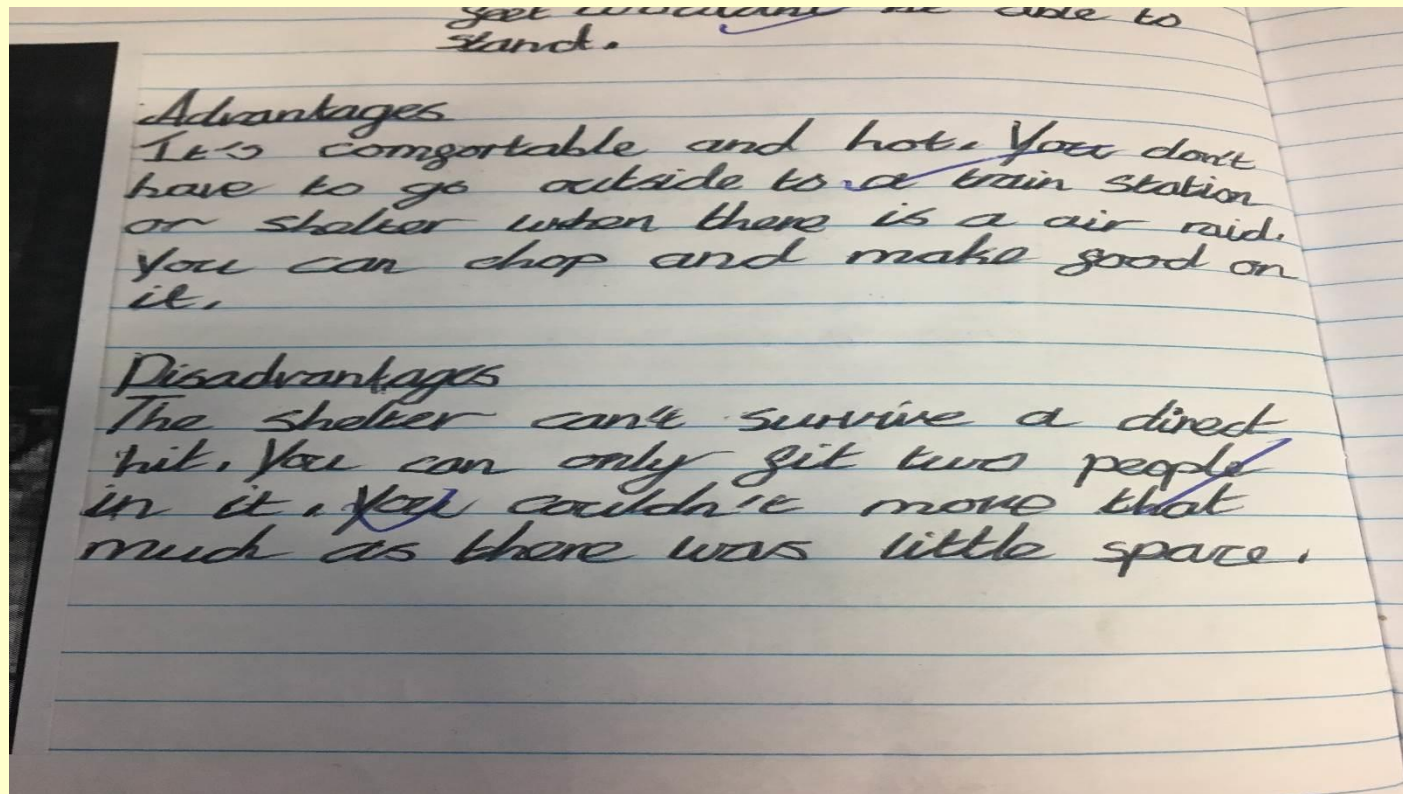 be able to
stand.
Advantages
It's comfortable and hot. You don't
have to go outside to a train station
or shelter when there is a air raid.
You can chop and make food on
it.
Disadvantages
The shelter can't survive a direct
hit. You can only fit two people
in it. You couldn't move that
much as there was little space.